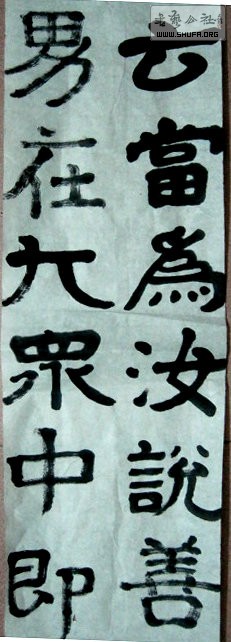 云當為汝說善
男在大眾中即
書藝公社
WWW.SHUFA.ORG